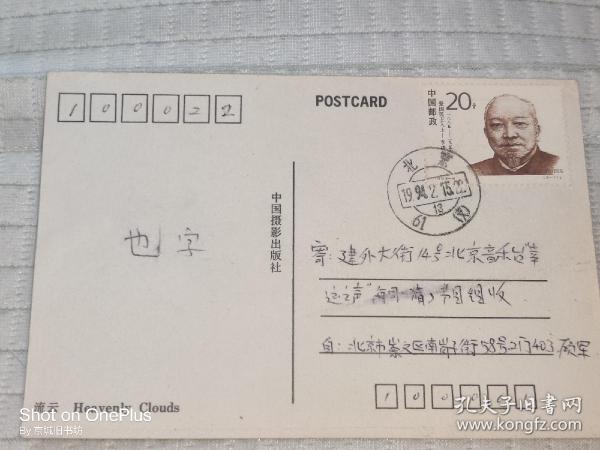 100022
POSTCARD
中国邮政
20分
北京
1994.2.15.22
13
61
(支)
中国摄影出版社
也字
寄:建外大街14号北京音乐台苹
"每日一猜"节目组收
自:北京市崇文区南岗子街58号2门403
流云 Heavenly Clouds
Shot on OnePlus
By 京城旧书坊
孔夫子旧书网
www.kongfz.com